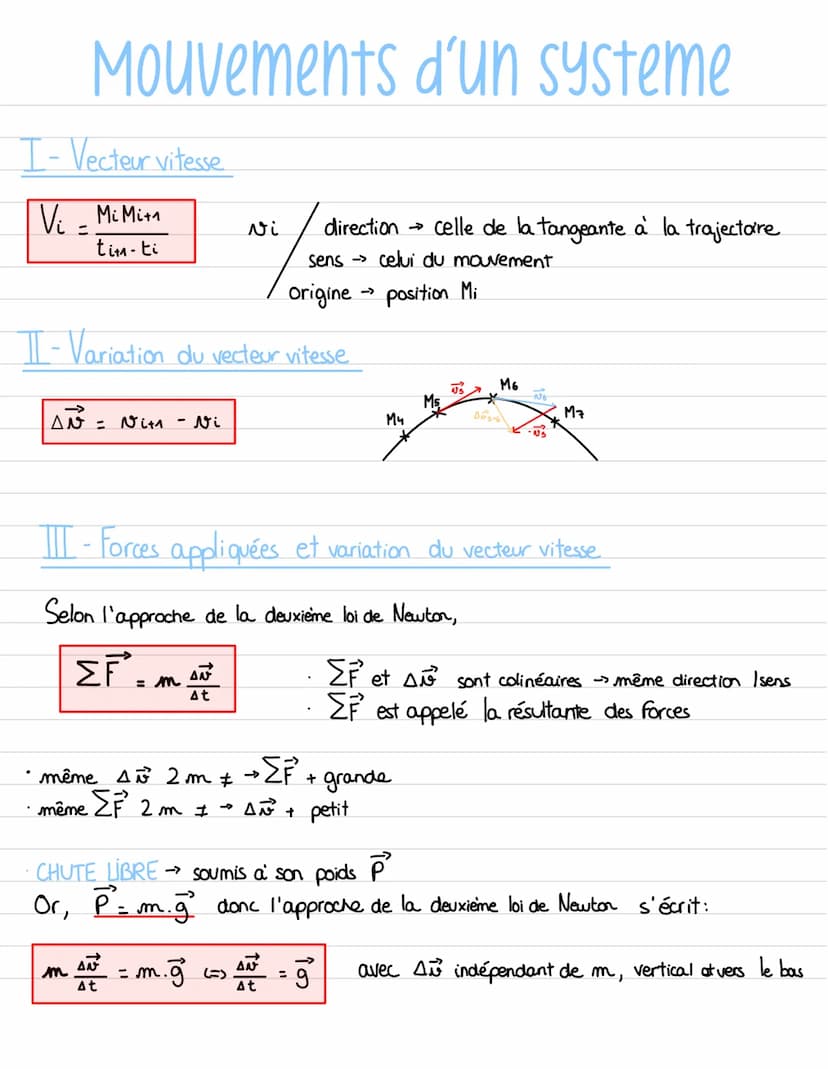 Mouvements d'un systeme
I - Vecteur vitesse
Vi = MiMi+1 / ti+1 - ti
vi / direction → celle de la tangeante à la trajectoire
sens → celui du mouvement
origine → position Mi
II - Variation du vecteur vitesse
Δv⃗ = vi+1 - vi
M4 M5 v⃗5 M6 v⃗6 M7 -v⃗5
III - Forces appliquées et variation du vecteur vitesse
Selon l'approche de la deuxième loi de Newton,
ΣF⃗ = m Δv⃗ / Δt
· ΣF⃗ et Δv⃗ sont colinéaires → même direction / sens
· ΣF⃗ est appelé la résultante des forces
· même Δv⃗ 2 m ≠ → ΣF⃗ + grande
· même ΣF⃗ 2 m ≠ → Δv⃗ + petit
· CHUTE LIBRE → soumis à son poids P⃗
Or, P⃗ = m.g⃗ donc l'approche de la deuxième loi de Newton s'écrit:
m Δv⃗ / Δt = m.g⃗ (=) Δv⃗ / Δt = g⃗ avec Δv⃗ indépendant de m, vertical et vers le bas